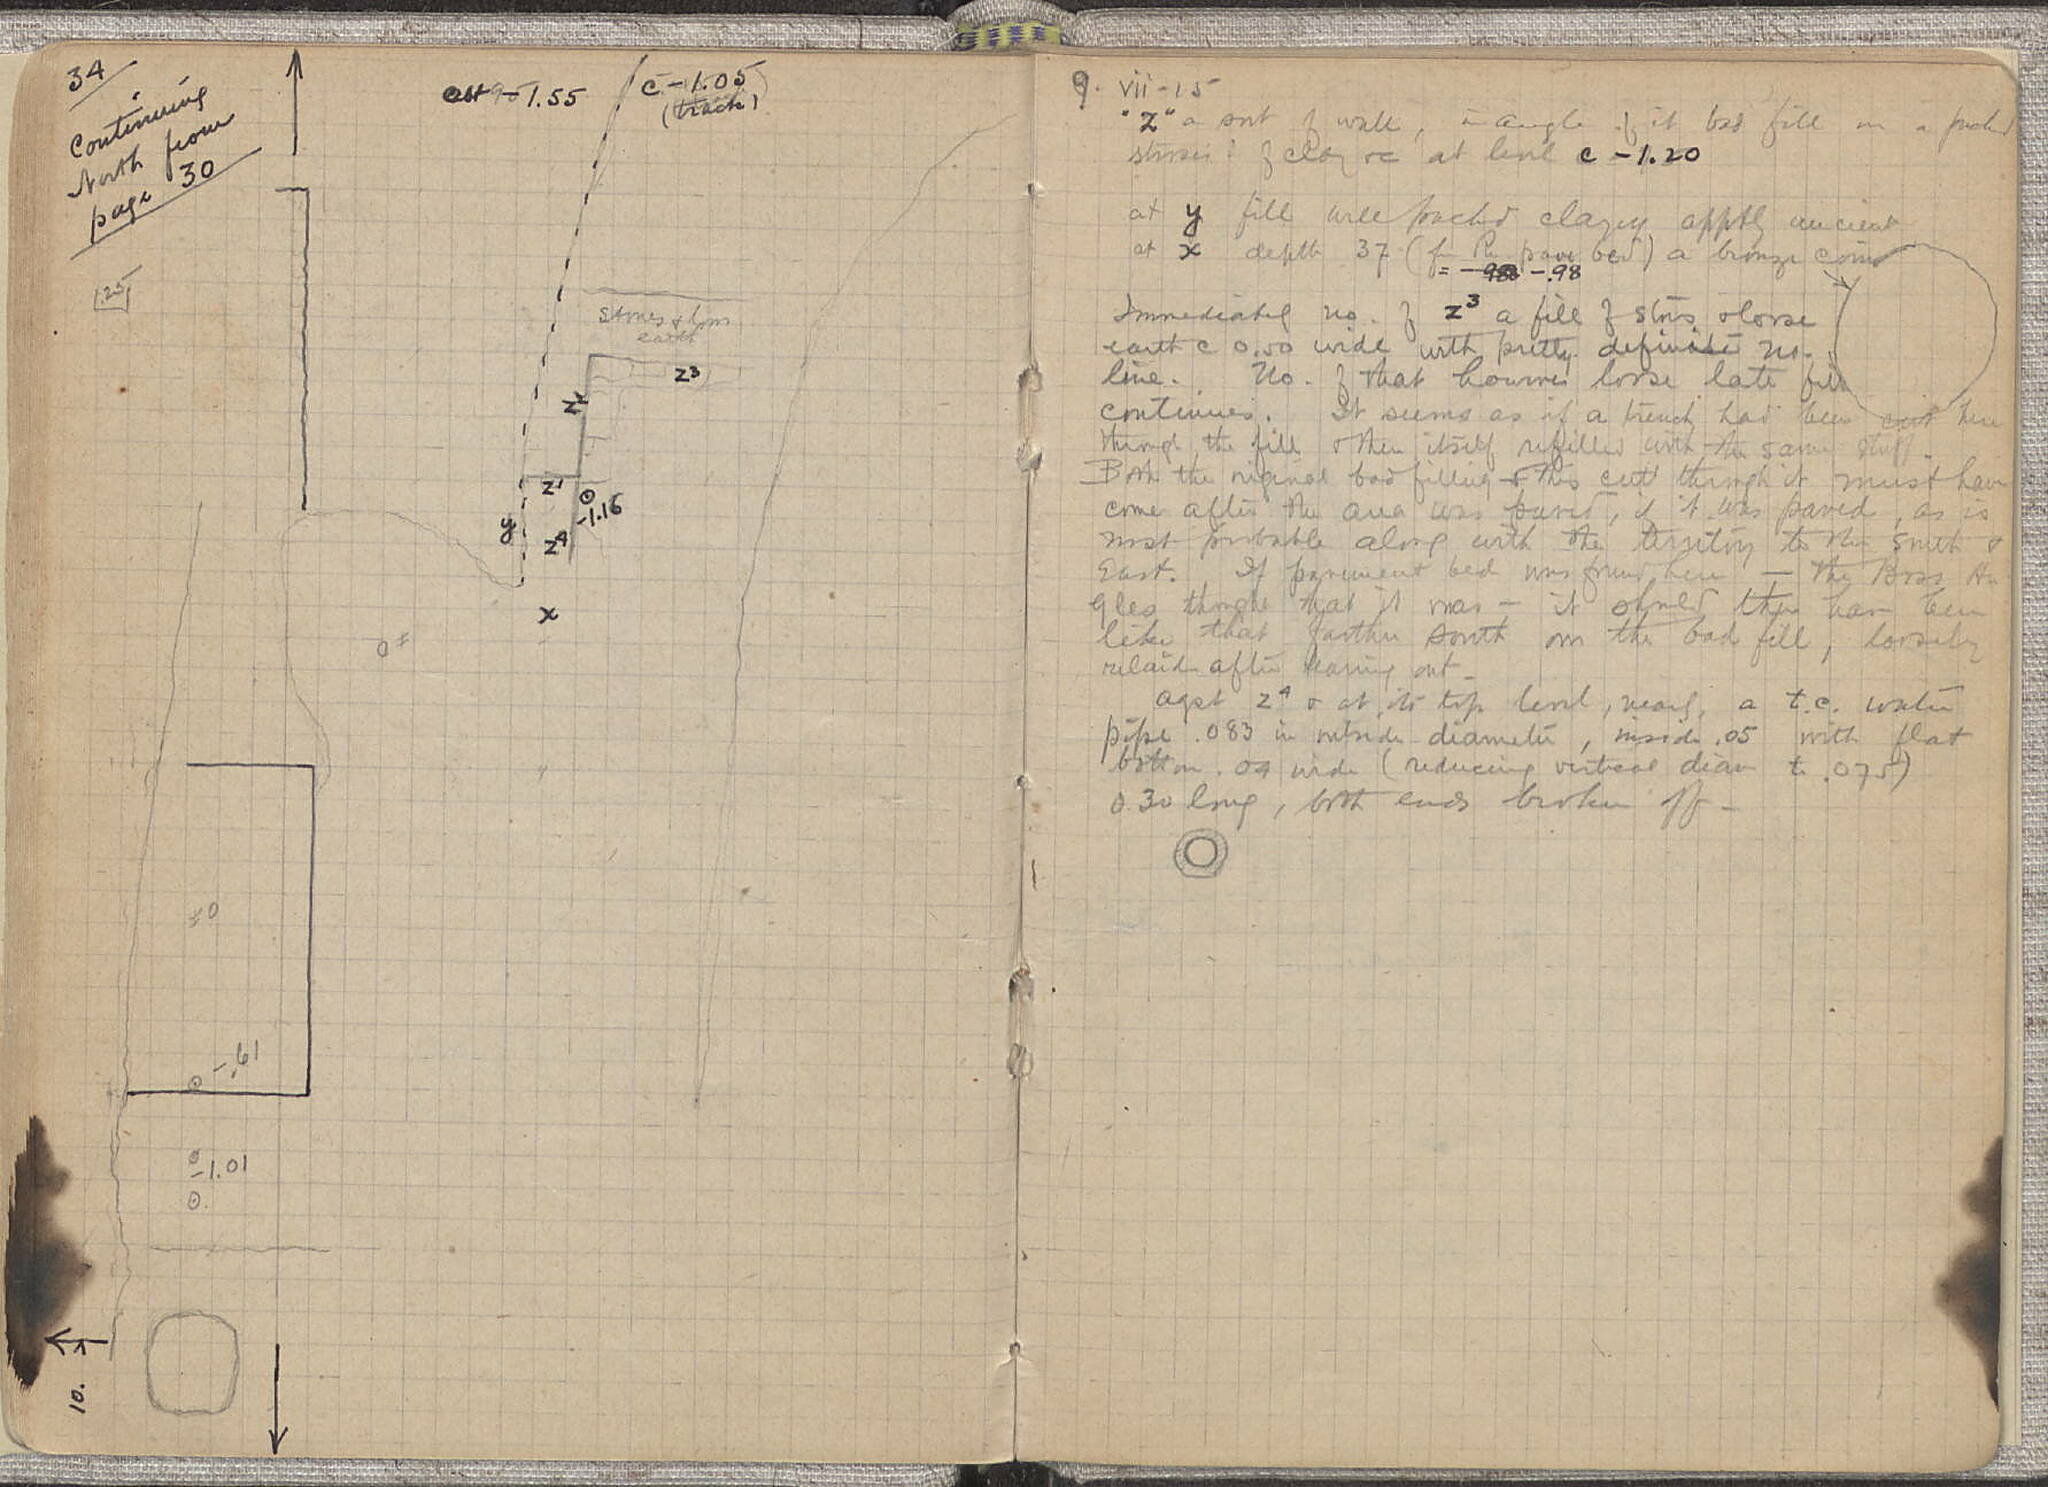 34
Continuing
North from
page 30
.25
abt -1.55
c -1.05
(track)
Stones & loose
earth
z³
z²
z¹
-1.16
y
z⁴
x
0±
±0
-.61
-1.01
10.
9. vii-15
"Z" a sort of wall, in angle of it bad fill on a packed
of clay at level c -1.20
at y fill well packed clayey apptly ancient
at x depth 37 (fm pave bed) a bronze coin
= -.98
Immediately no. of z³ a fill of stones & loose
earth c 0.50 wide with pretty definite no.
line. No. of that however loose late fill
continues. It seems as if a trench had been cut here
through the fill & then itself refilled with the same stuff.
Both the original bad filling & this cut through it must have
come after the area was paved, if it was paved, as is
most probable along with the territory to the South &
East. If pavement bed was found here — the Boss
thought that it was — it should then have been
like that farther south on the bad fill, loosely
relaid after tearing out —
agst z⁴ & at its top level, nearly, a t.c. water
pipe .083 in outside diameter, inside .05 with flat
bottom .04 wide (reducing vertical diam to .075)
0.30 long, both ends broken off —